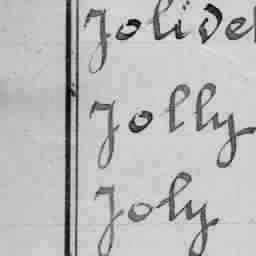 Jolive
Jolly
Joly